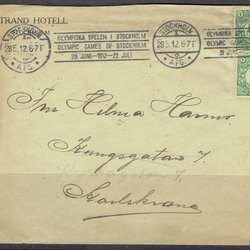 STRAND HOTELL
STOCKHOLM
28.5.12.6-7 F
AFG.
OLYMPISKA SPELEN I STOCKHOLM
OLYMPIC GAMES OF STOCKHOLM
29 JUNI-1912-22 JULI
STOCKHOLM
28.5.12.6-7 F
AFG.
Fru Hilma
Kungsgatan
Karlskrona